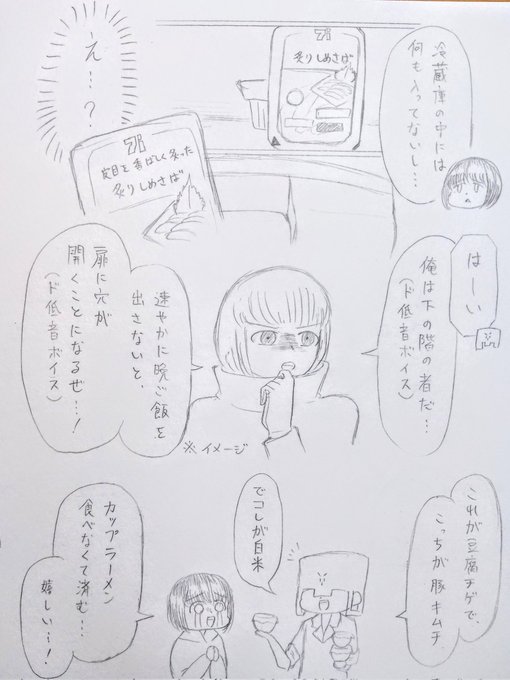 冷蔵庫の中には
何も入ってないし…
炙りしめさば
え…？
皮目を香ばしく炙った
炙りしめさば
はーい
俺は下の階の者だ…
(ド低音ボイス)
速やかに晩ご飯を
出さないと、
扉に穴が
開くことになるぜ…！
(ド低音ボイス)
※イメージ
これが豆腐チゲで、
こっちが豚キムチ
でコレが白米
カップラーメン
食べなくて済む…
嬉しい…！